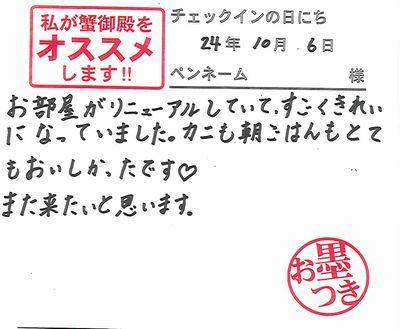 私が蟹御殿を
オススメ
します!!
チェックインの日にち
24年 10月 6日
ペンネーム 様
お部屋がリニューアルしていて、すごくきれい
になっていました。カニも朝ごはんもとて
もおいしかったです♡
また来たいと思います。
お墨つき